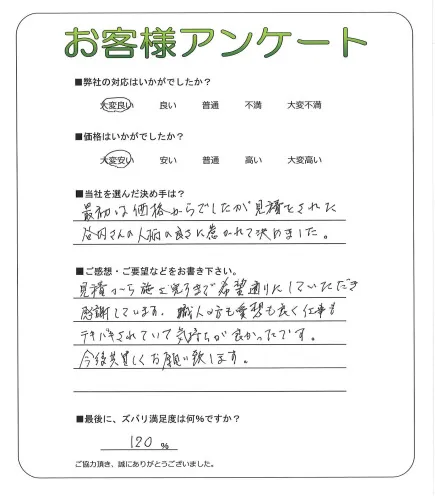 お客様アンケート
■弊社の対応はいかがでしたか?
大変良い 良い 普通 不満 大変不満
■価格はいかがでしたか?
大変安い 安い 普通 高い 大変高い
■当社を選んだ決め手は?
最初は価格からでしたが見積をされた
谷内さんの人柄の良さに惹かれて決めました。
■ご感想・ご要望などをお書き下さい。
見積から施工完了まで希望通りにしていただき
感謝しています。職人の方も愛想も良く仕事も
テキパキされていて気持ちが良かったです。
今後共宜しくお願い致します。
■最後に、ズバリ満足度は何%ですか?
120 %
ご協力頂き、誠にありがとうございました。